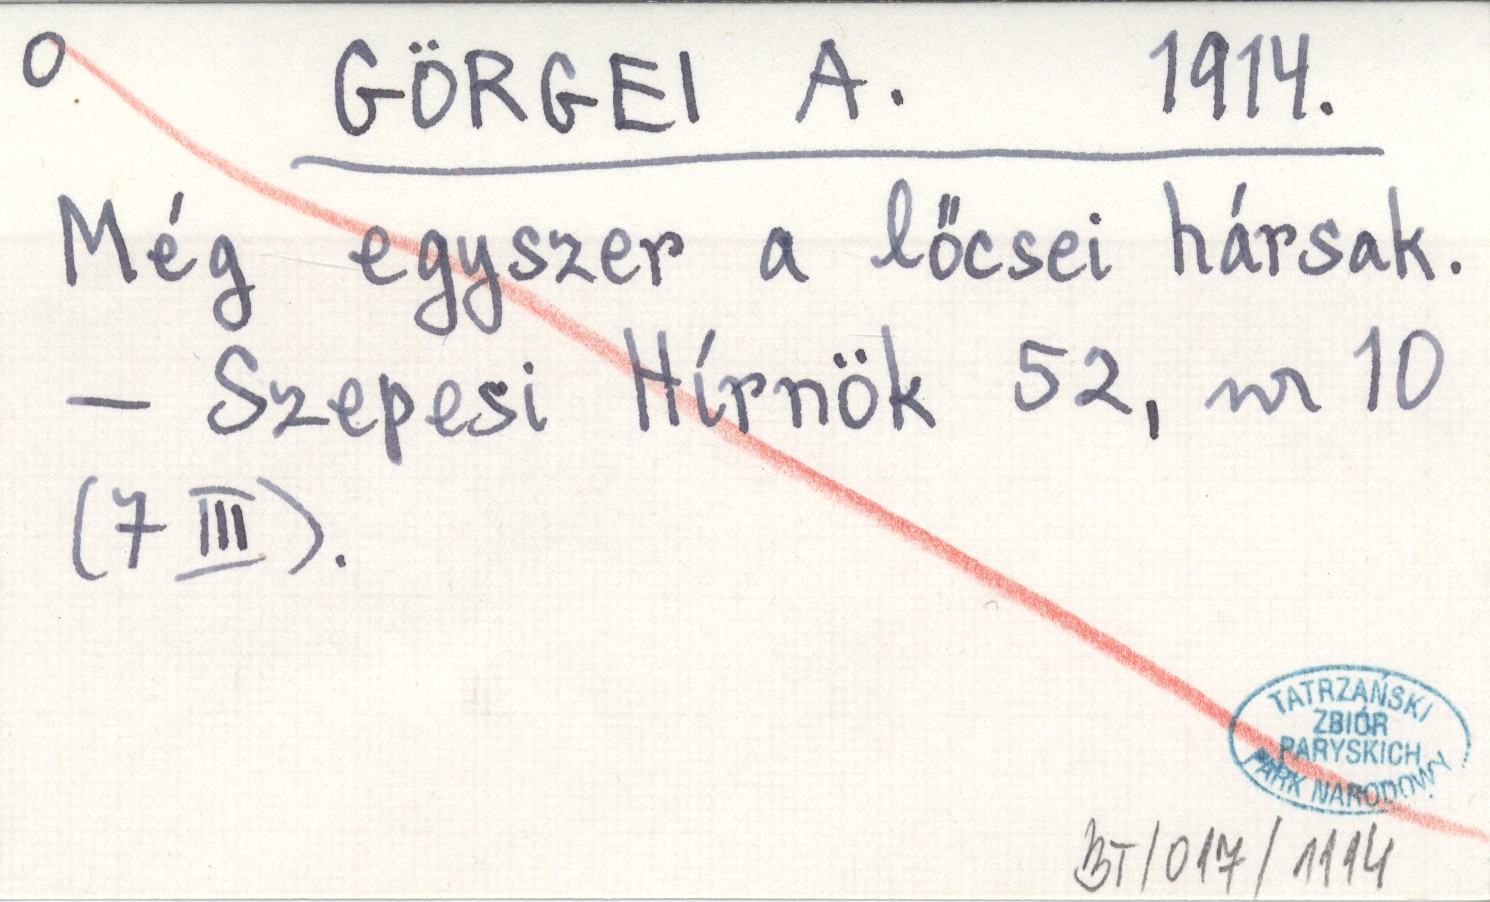 O GÖRGEI A. 1914.
Még egyszer a lőcsei hársak.
— Szepesi Hírnök 52, nr 10
(7 III).
TATRZAŃSKI
ZBIÓR
PARYSKICH
PARK NARODOWY
BT/017/1114